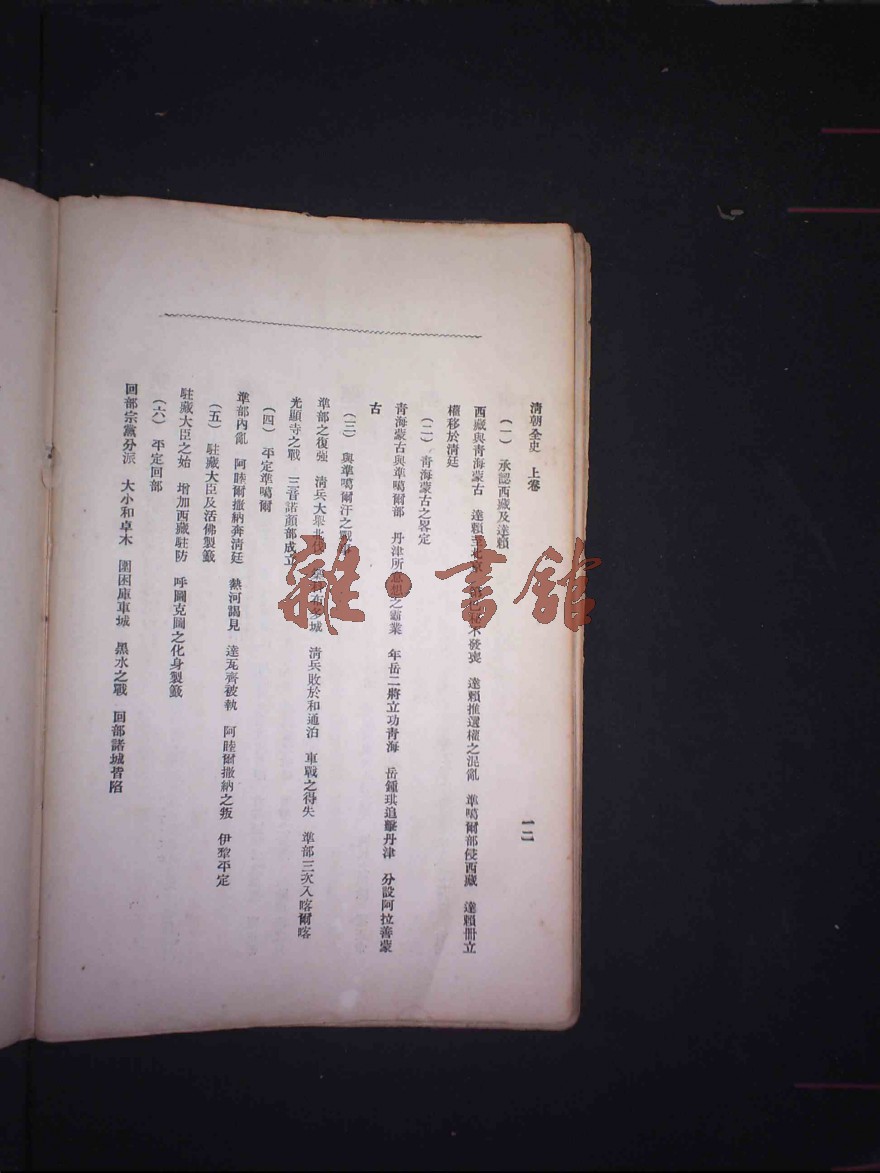 清朝全史　上卷
一二
（一）　承認西藏及達賴
西藏與青海蒙古　達賴至北京　發喪　達賴推選權之混亂　準噶爾部侵西藏　達賴冊立
權移於清廷
（二）　青海蒙古之畧定
青海蒙古與準噶爾部　丹津所意想之霸業　年岳二將立功青海　岳鍾琪追擊丹津　分設阿拉善蒙
古
（三）　與準噶爾汗之戰爭
準部之復強　清兵大舉北伐　布多城　清兵敗於和通泊　車戰之得失　準部三次入喀爾喀
光顯寺之戰　三音諾顏部成立
（四）　平定準噶爾
準部內亂　阿睦爾撒納奔清廷　熱河謁見　達瓦齊被執　阿睦爾撒納之叛　伊犂平定
（五）　駐藏大臣及活佛製籤
駐藏大臣之始　增加西藏駐防　呼圖克圖之化身製籤
（六）　平定回部
回部宗黨分派　大小和卓木　圍困庫車城　黑水之戰　回部諸城皆陷
雜·書館